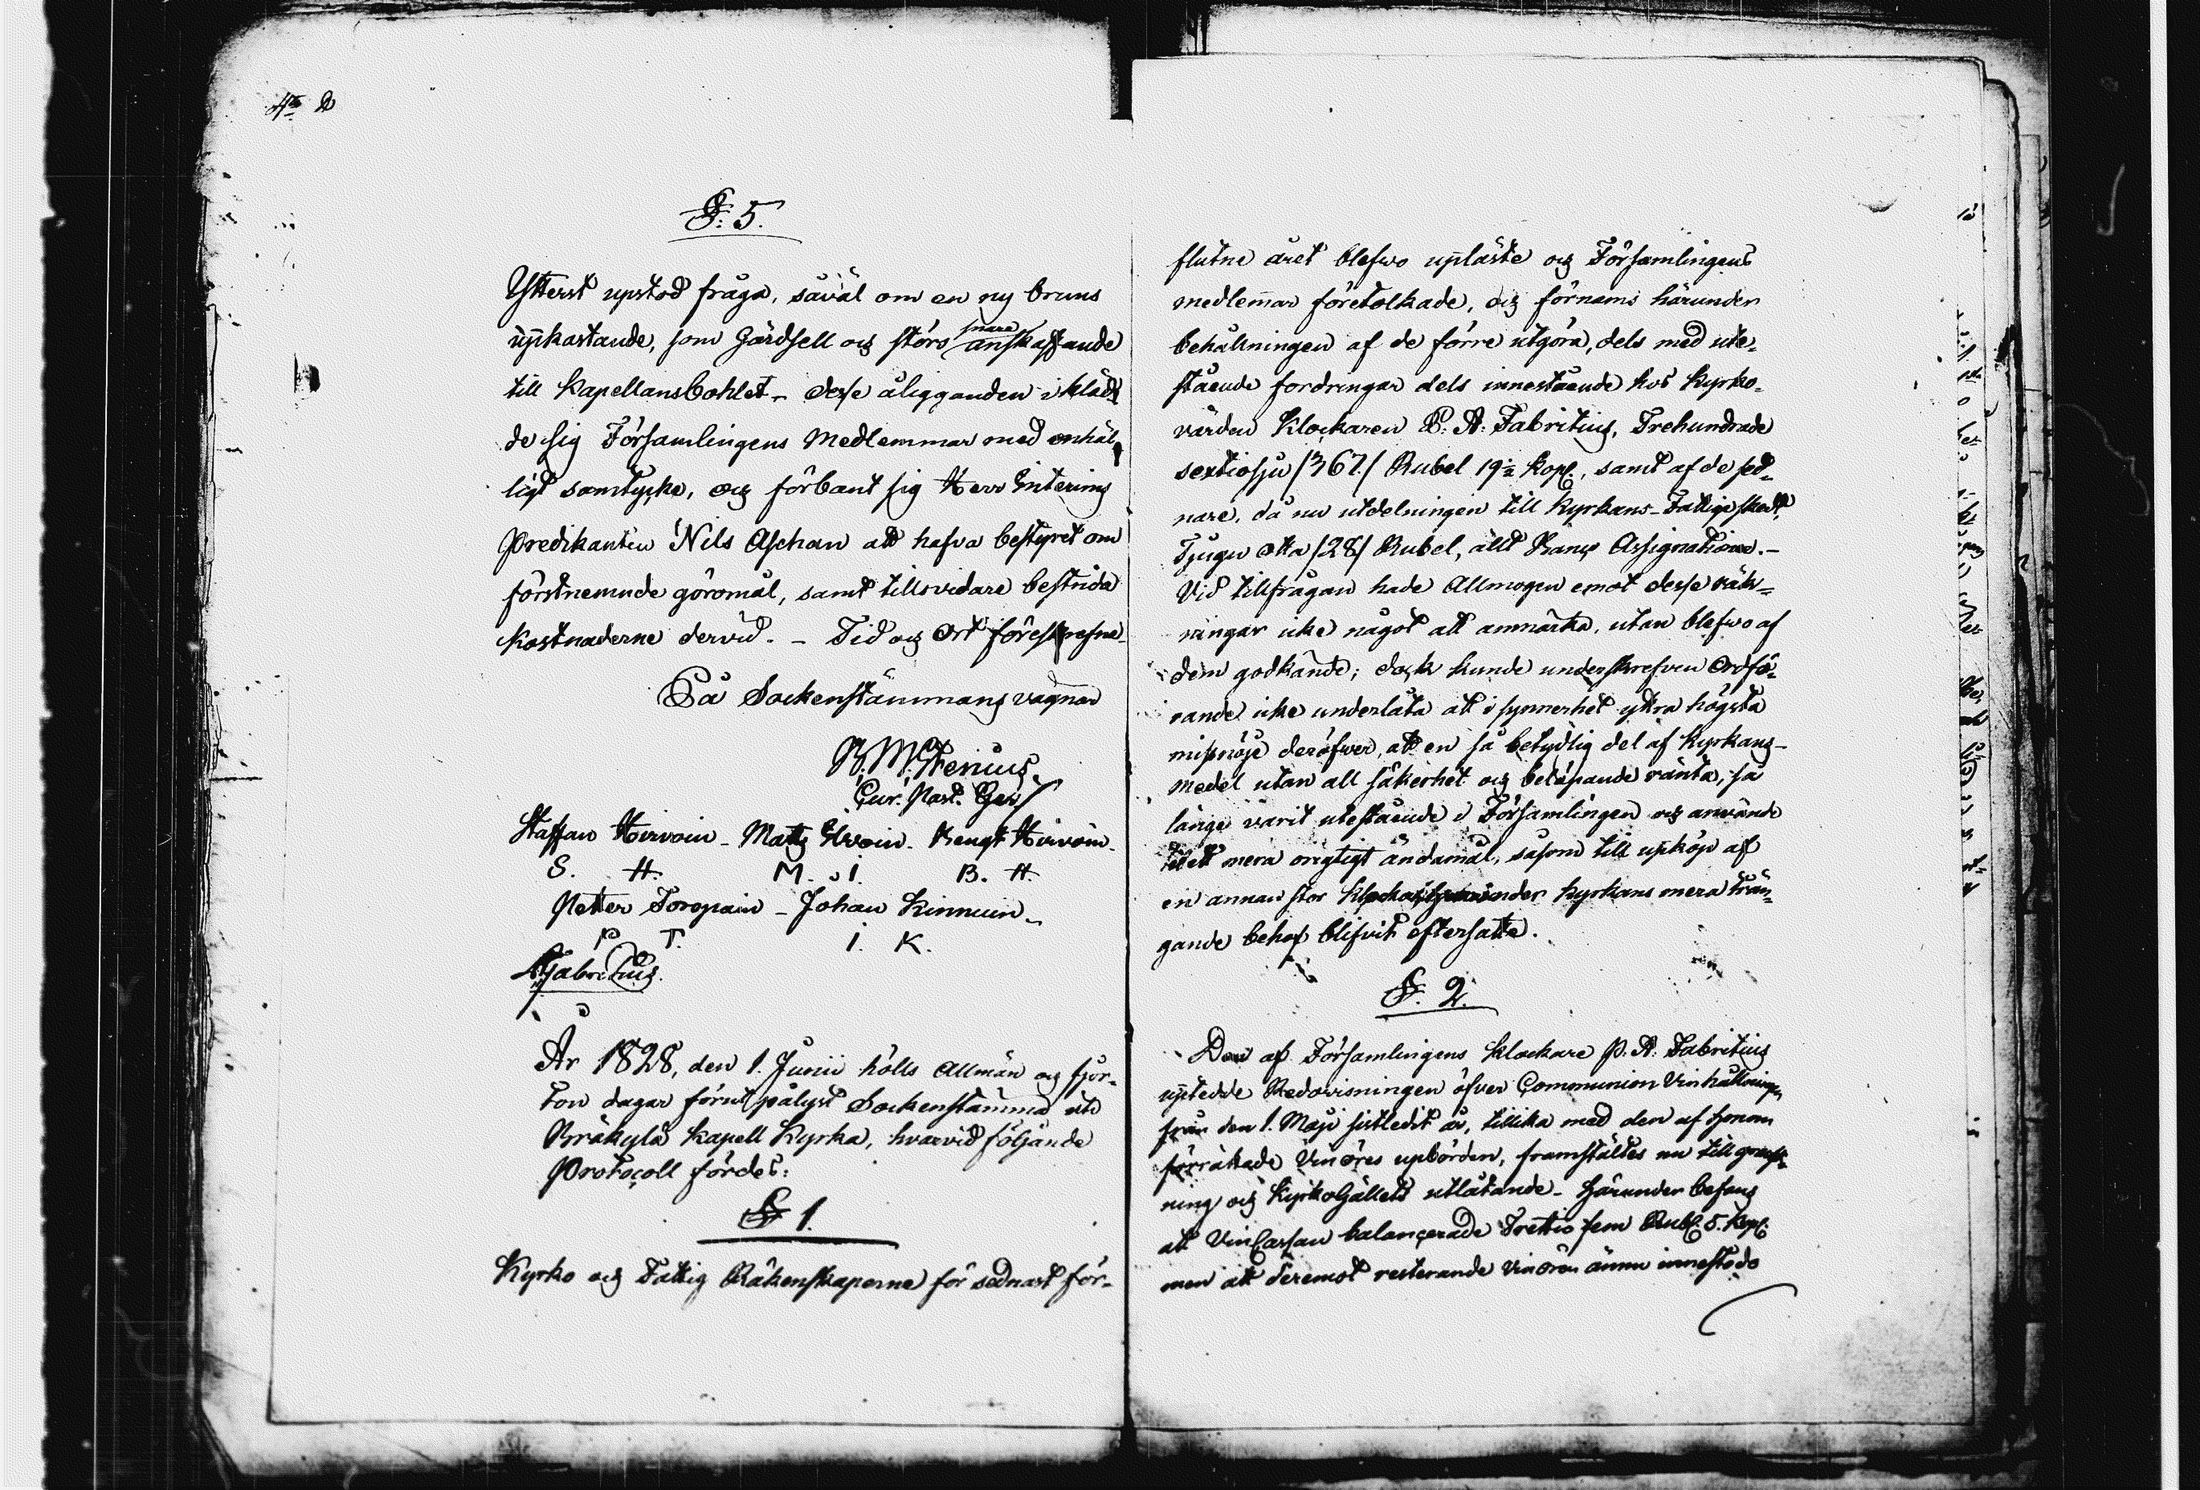 §: 5.
Ytterst upstod fråga, såväl om en ny bruns
uppkastande, som Gärdsell och störs snara anskaffande
till Kapellansbohlet. Desse åligganden iklädd
de sig Församlingens Medlemmar med enhäl
ligt samtycke, och förbant sig Herr Interims
Predikanten Nils Aschan att hafva bestyret om
förstnemnde göromål, samt tillsvidare bestrida
kostnaderne dervid. – Tid och Ort föreskrefne
På Sockenstämmans vägnar
Cur. Past. Ger.
Staffan Hirvoin – Matts Hirvoin – Bengt Hirvoin
S. H. M. I. B. H.
Petter Toropain – Johan Kinnuin
P T. I. K.
Fabritius.
År 1828, den 1. Junii hölls Allmän och fjor-
ton dagar förut pålyst Sockenstämma uti
Bräkylä Kapell Kyrka, hvarvid följande
Protocoll fördes:
§ 1.
Kyrko och Fattig Räkenskaperne för sednast för-
flutne året blefwo uppläste och Församlingens
medlemmar företolkade, och förnams härunder
behållningen af de förre utgöra, dels med ute-
stående fordringar dels innestående hos Kyrko-
värden Klockaren P. A. Fabritius, Trehundrade
sextiosju /367/ Rubel 19½ Kop., samt af de sed-
nare, då nu utdelningen till Kyrkans Fattige skedt,
Tjugu otta /28/ Rubel, allt Banco Assignationer. –
Vid tillfrågan hade Allmogen emot desse räk-
ningar icke något att anmärka, utan blefwo af
dem godkände; dock kunde underskrefven Ordfö-
rande icke underlåta att i synnerhet yttra högsta
missnöje deröfwer, att en så betydlig del af Kyrkans
medel utan all säkerhet och betäpande ränta, så
länge varit utestående i Församlingen och använde
till ett mera onyttigt ändamål, såsom till upköp af
en annan stor Klocka, hvarunder Kyrkans mera trän-
gande behof blifvit eftersatte.
§. 2.
Den af Församlingens Klockare P. A. Fabritius
upptedde Redovisningen öfver Communion Vinhållningen
från den 1. Maji sistledit år, tillika med den af honom
förrättade Vinöres upbörden, framställtes nu till gransk-
ning och KyrkoGällets utlåtande. Härunder befans
att VinCassan balancerade Trettio fem Rubl. 5. Kop.
men att deremot resterande Vinören ännu innestodo